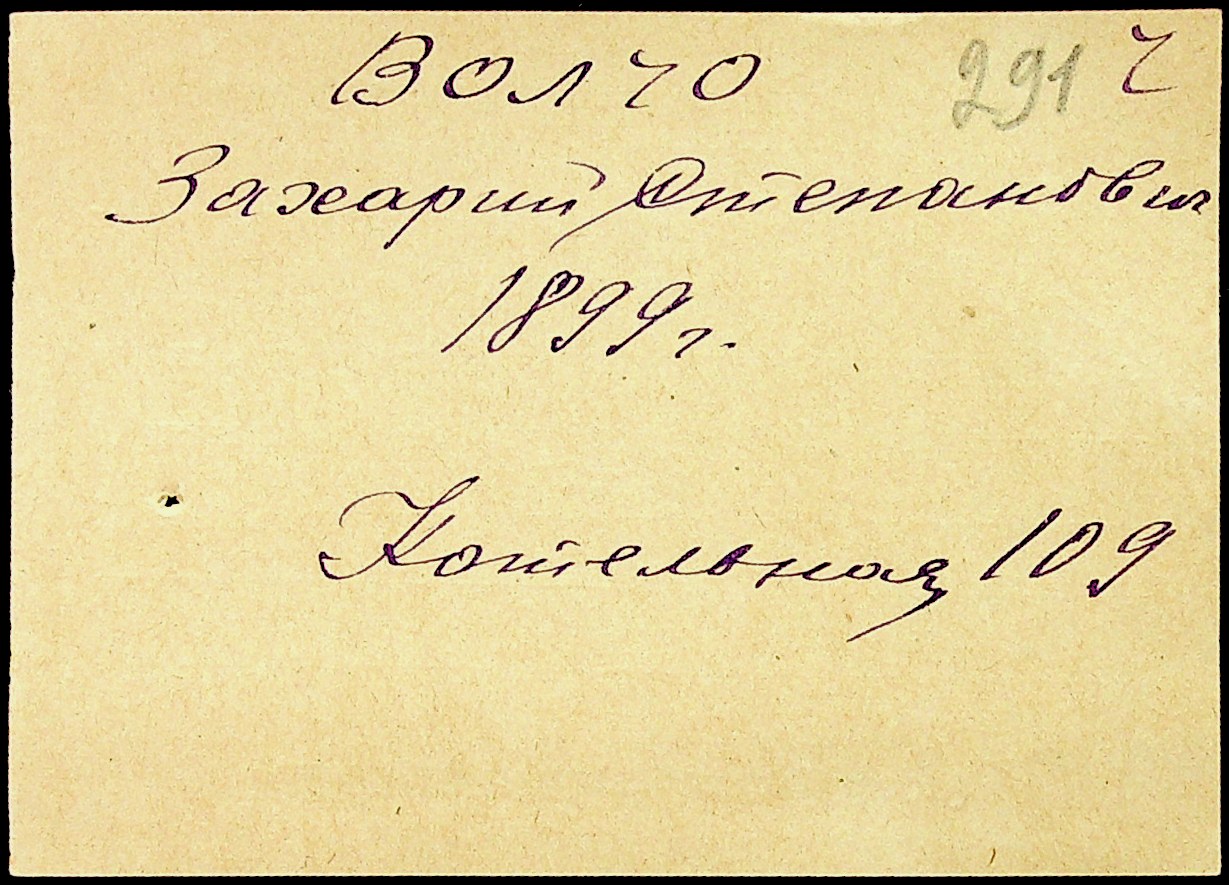 Волчо 291 Ч
Захарий Степанович
1899 г.
Котельная 109